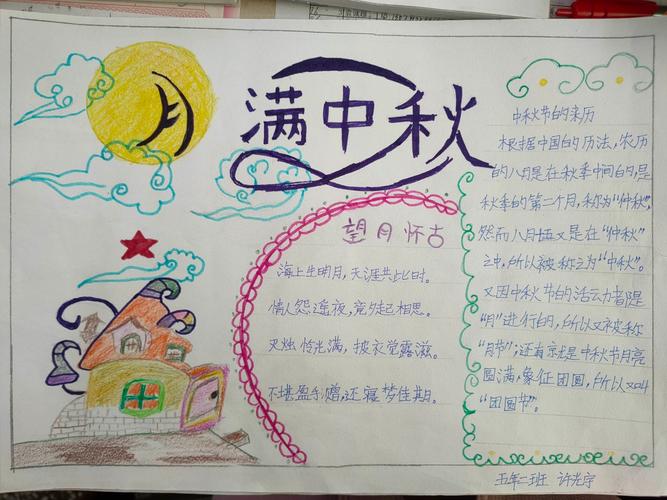 月满中秋
望月怀古
海上生明月，天涯共此时。
情人怨遥夜，竟夕起相思。
灭烛怜光满，披衣觉露滋。
不堪盈手赠，还寝梦佳期。
中秋节的来历
根据中国的历法，农历
的八月是在秋季中间的，是
秋季的第二个月，称为"仲秋"，
然而八月十五又是在"仲秋"
之中，所以被称之为"中秋"。
又因中秋节的活动都是
"月"进行的，所以又被称
"月节"；还有就是中秋节月亮
圆满，象征团圆，所以又叫
"团圆节"。
五年二班 许光宇